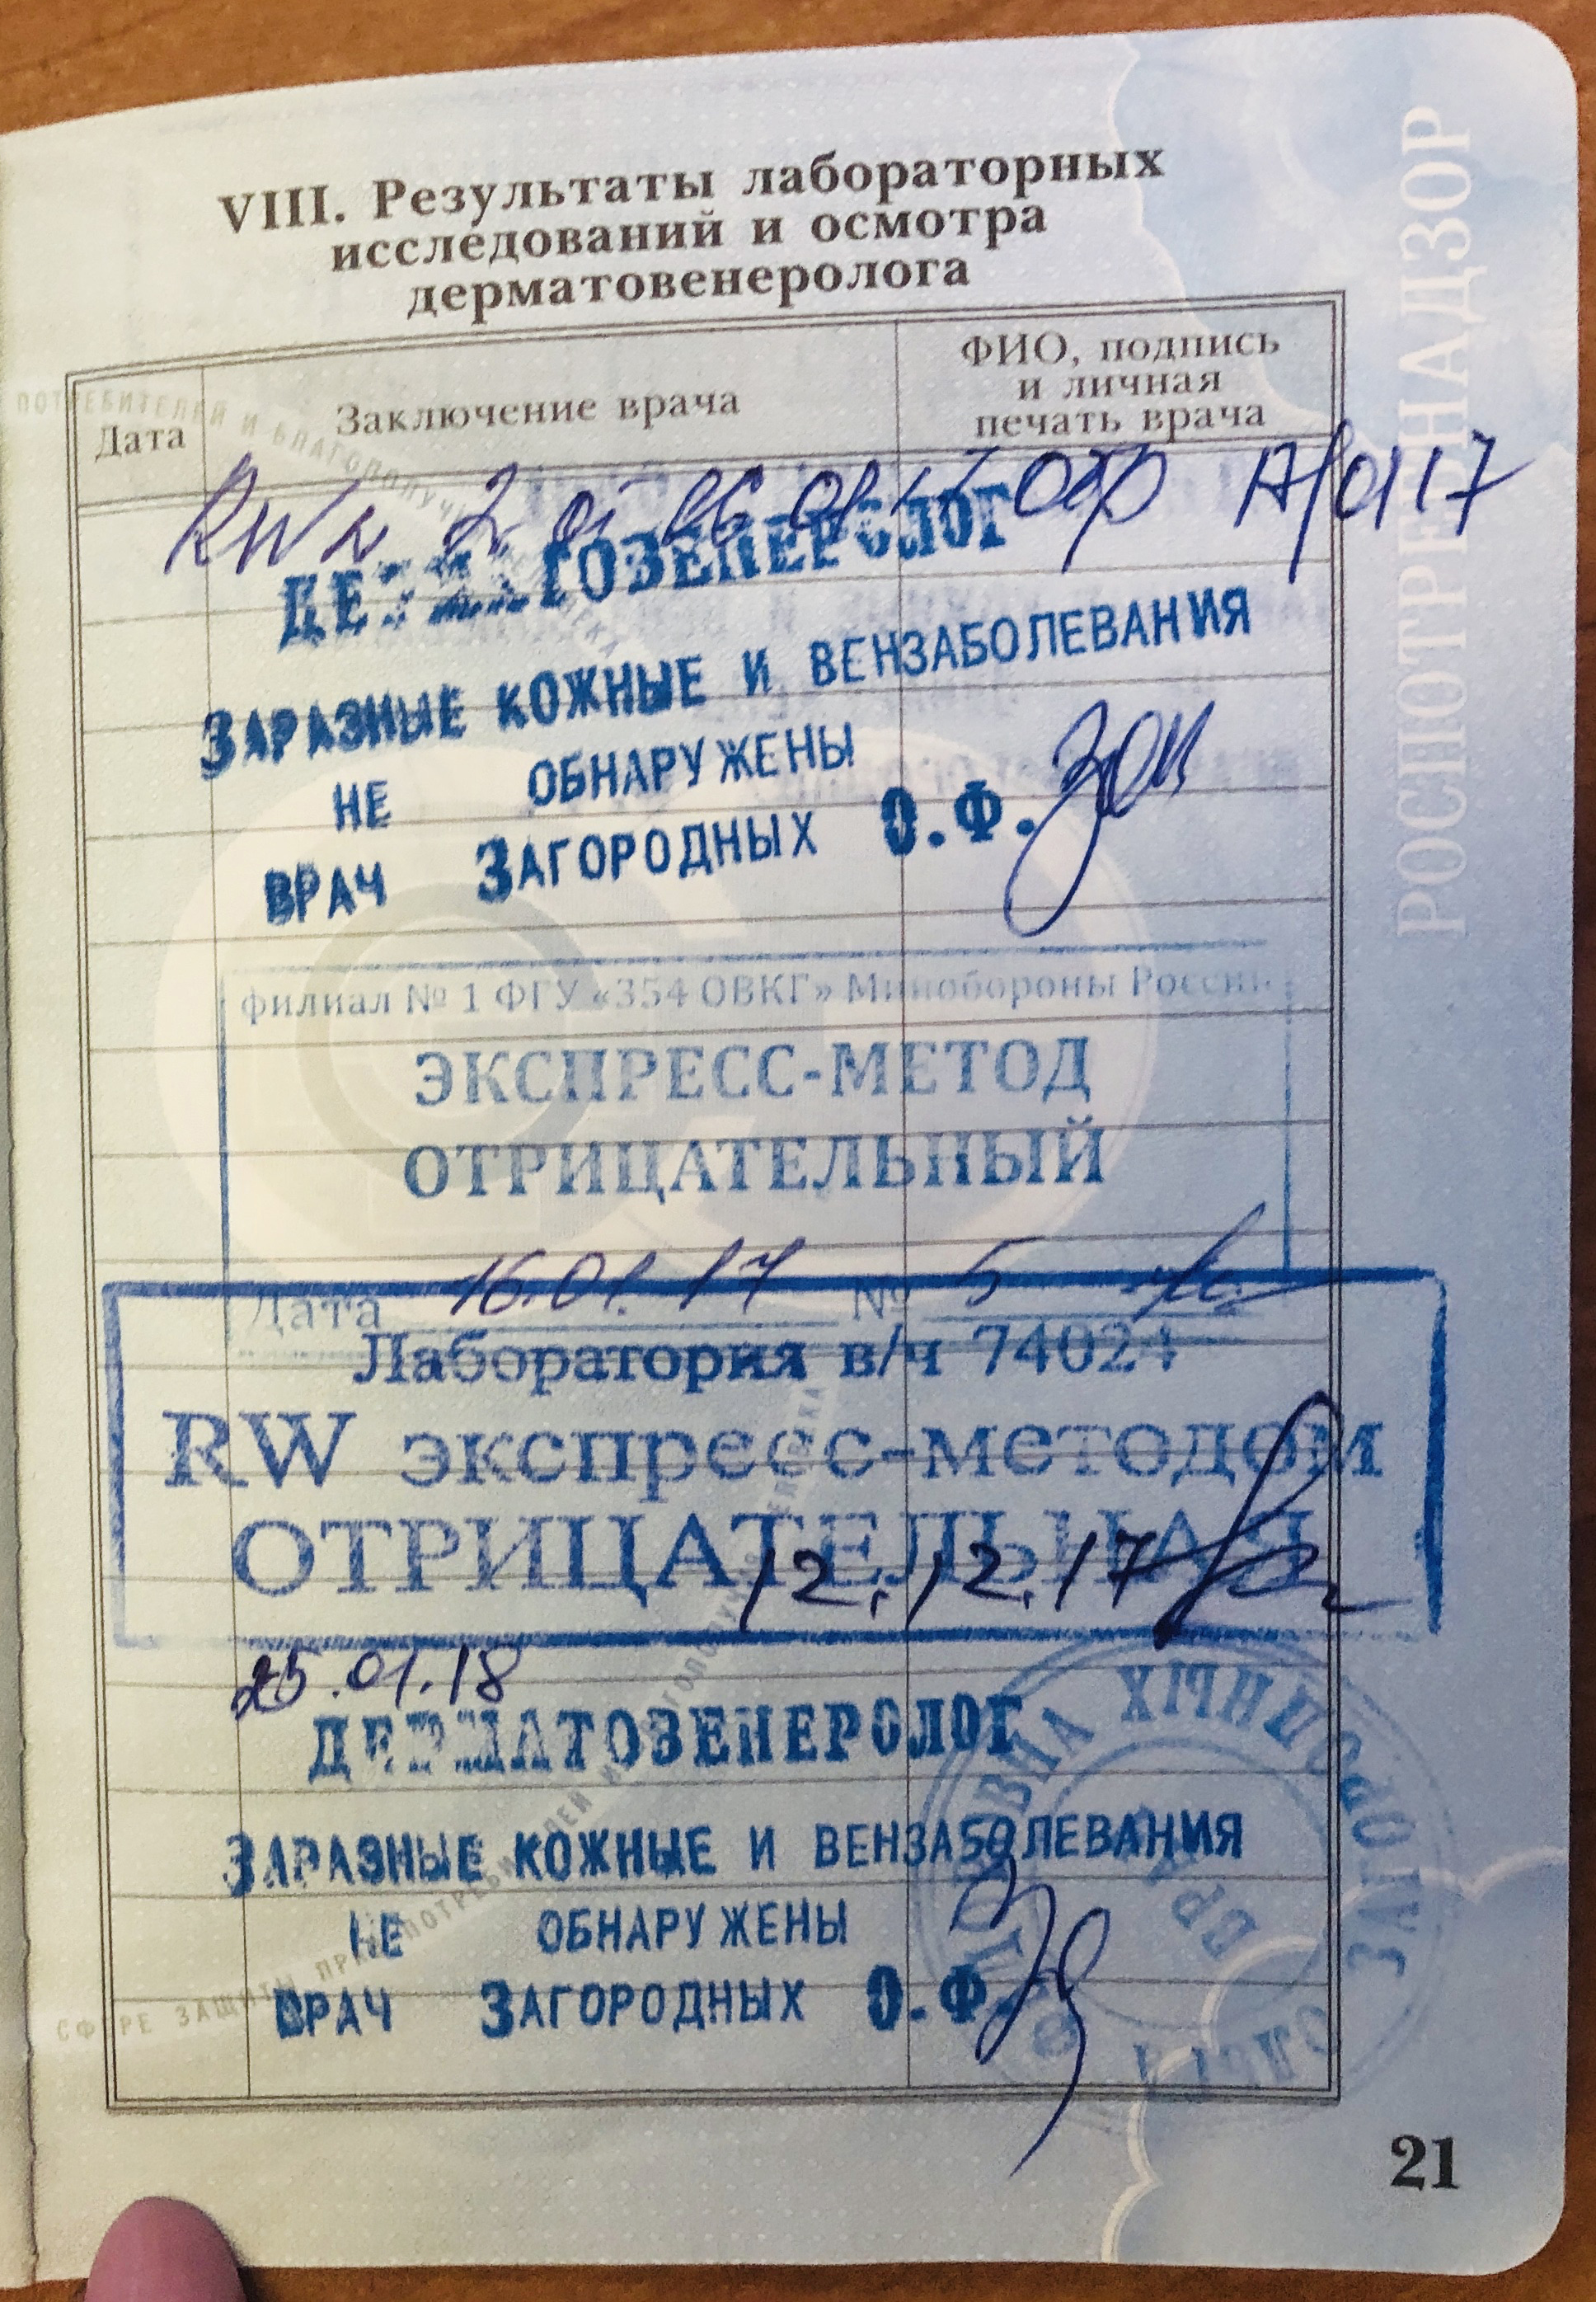 VIII. Результаты лабораторных
исследований и осмотра
дерматовенеролога
Дата
Заключение врача
ФИО, подпись
и личная
печать врача
RW
ДЕРМАТОВЕНЕРОЛОГ
ЗАРАЗНЫЕ КОЖНЫЕ И ВЕНЗАБОЛЕВАНИЯ
НЕ ОБНАРУЖЕНЫ
ВРАЧ ЗАГОРОДНЫХ О.Ф.
филиал № 1 ФГУ «354 ОВКГ» Минобороны России
ЭКСПРЕСС-МЕТОД
ОТРИЦАТЕЛЬНЫЙ
Дата 16.01.17 № 5
Лаборатория в/ч 74024
RW экспресс-методом
ОТРИЦАТЕЛЬНАЯ
12.12.17
25.01.18
ДЕРМАТОВЕНЕРОЛОГ
ЗАРАЗНЫЕ КОЖНЫЕ И ВЕНЗАБОЛЕВАНИЯ
НЕ ОБНАРУЖЕНЫ
ВРАЧ ЗАГОРОДНЫХ О.Ф.
ЗАГОРОДНЫХ
ВРАЧ
РОСПОТРЕБНАДЗОР
21